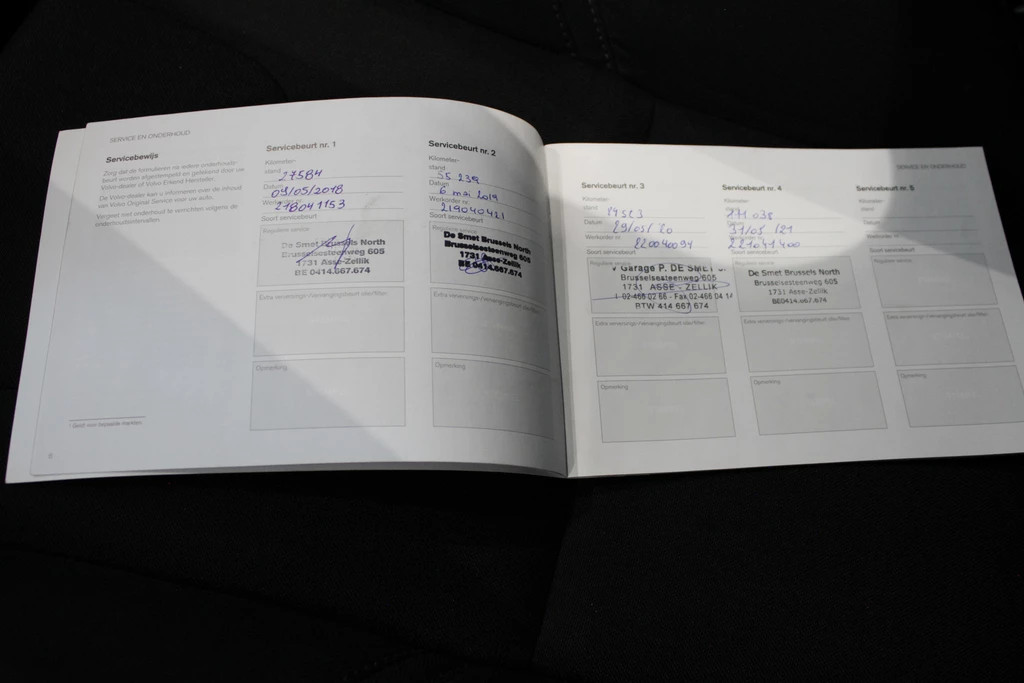 SERVICE EN ONDERHOUD
Servicebewijs
Zorg dat de formulieren na iedere onderhouds-
beurt worden afgestempeld en getekend door uw
Volvo-dealer of Volvo Erkend Hersteller.
De Volvo-dealer kan u informeren over de inhoud
van Volvo Original Service voor uw auto.
Vergeet niet onderhoud te verrichten volgens de
onderhoudsintervallen.
1 Geldt voor bepaalde markten.
6
Servicebeurt nr. 1
Kilometer-
stand
27584
Datum
09/05/2018
218041153
Soort servicebeurt
Reguliere service
De Smet Brussels North
Brusselsesteenweg 605
1731 Asse-Zellik
BE 0414.667.674
Extra verversings-/vervangingsbeurt olie/filter
Opmerking
Servicebeurt nr. 2
Kilometer-
stand
55 238
Datum
6 mei 2019
219040421
Soort servicebeurt
Reguliere service
De Smet Brussels North
Brusselsesteenweg 605
1731 Asse-Zellik
BE 0414.667.674
Extra verversings-/vervangingsbeurt olie/filter
Opmerking
SERVICE EN ONDERHOUD
Servicebeurt nr. 3
Kilometer-
stand
Datum
29/05/20
Werkorder nr.
220040094
Soort servicebeurt
Reguliere service
Garage P. DE SMET
Brusselsesteenweg 605
1731 ASSE - ZELLIK
02-466 02 66 - Fax 02-466 04 14
BTW 414 667 674
Extra verversings-/vervangingsbeurt olie/filter
Opmerking
Servicebeurt nr. 4
Kilometer-
stand
Datum
31/05/21
Werkorder nr.
221041400
Soort servicebeurt
Reguliere service
De Smet Brussels North
Brusselsesteenweg 605
1731 Asse-Zellik
BE0414.667.674
Extra verversings-/vervangingsbeurt olie/filter
Opmerking
Servicebeurt nr. 5
Kilometer-
stand
Datum
Werkorder nr.
Soort servicebeurt
Reguliere service
Extra verversings-/vervangingsbeurt olie/filter
Opmerking